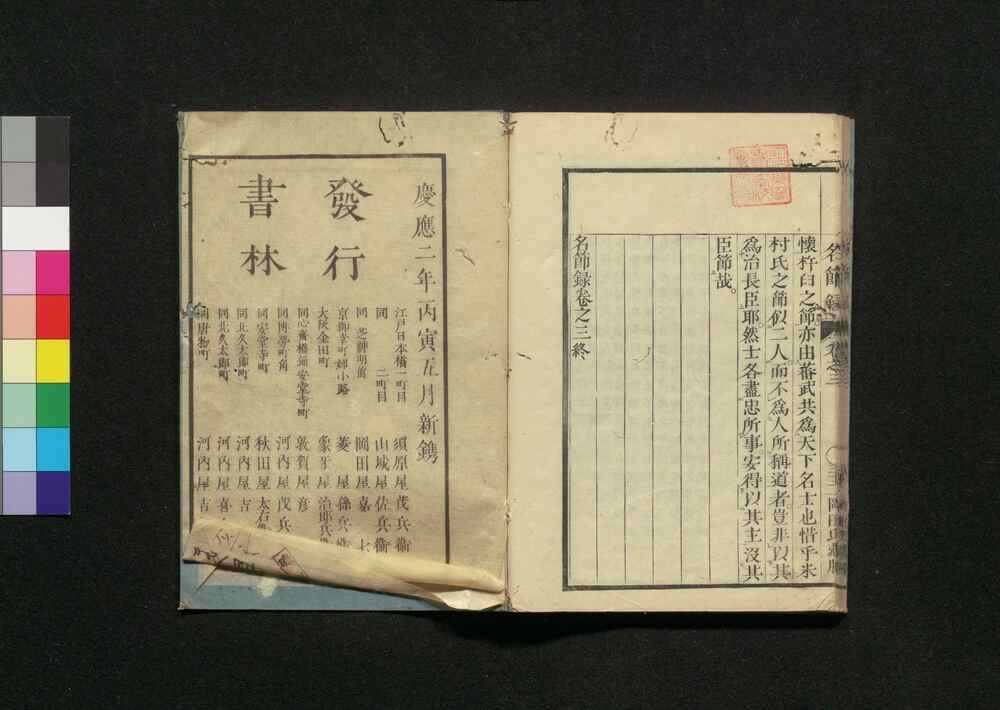 懷杵臼之節亦由蕃武共爲天下名士也惜乎米
村氏之節似二人而不爲人所稱道者豈非以其
爲治長臣耶。然士各盡忠所事安得以其主沒其
臣節哉。
名節録卷之三終
慶應二年丙寅五月新鐫
發行
書林
江戸日本橋一町目 須原屋茂兵衞
同 二町目 山城屋佐兵衞
同 芝神明前 岡田屋嘉七
京御幸町姉小路 菱屋孫兵衞
大阪金田町 象牙屋治郎兵衞
同心斎橋通安堂寺町 敦賀屋彦
同博勞町角 河内屋茂兵
同安堂寺町 秋田屋太右
同北久太郎町 河内屋吉
同北久太郎町 河内屋喜
同唐物町 河内屋吉